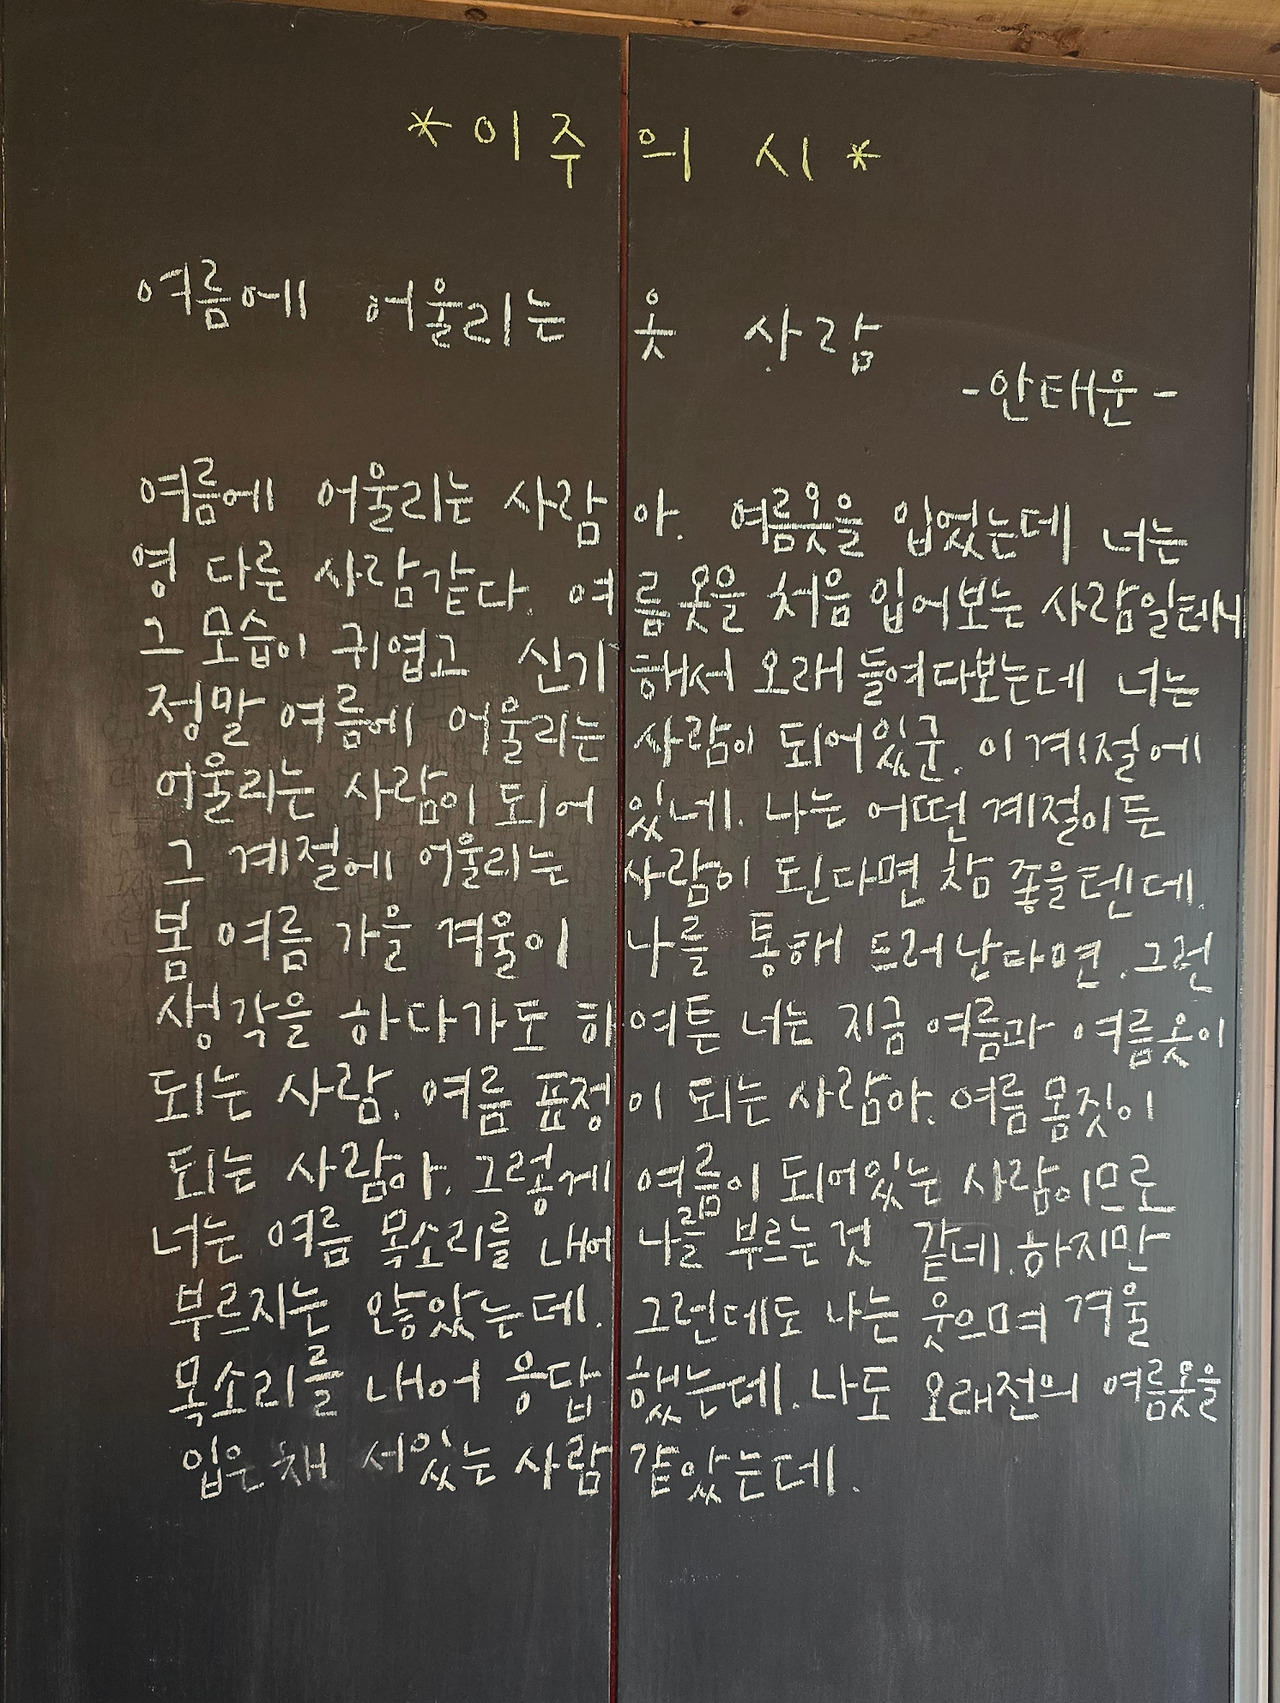 *이 주 의 시*
여름에 어울리는 옷 사람
-안태운-
여름에 어울리는 사람아. 여름옷을 입었는데 너는
영 다른 사람같다. 여름옷을 처음 입어보는 사람일테니
그 모습이 귀엽고 신기해서 오래 들여다보는데 너는
정말 여름에 어울리는 사람이 되어있군. 이 계절에
어울리는 사람이 되어 있네. 나는 어떤 계절이든
그 계절에 어울리는 사람이 된다면 참 좋을텐데.
봄 여름 가을 겨울이 나를 통해 드러난다면. 그런
생각을 하다가도 하여튼 너는 지금 여름과 여름옷이
되는 사람. 여름 표정이 되는 사람아. 여름 몸짓이
되는 사람아. 그렇게 여름이 되어있는 사람이므로
너는 여름 목소리를 내어 나를 부르는 것 같네. 하지만
부르지는 않았는데. 그런데도 나는 웃으며 겨울
목소리를 내어 응답했는데. 나도 오래전의 여름옷을
입은 채 서있는 사람 같았는데.